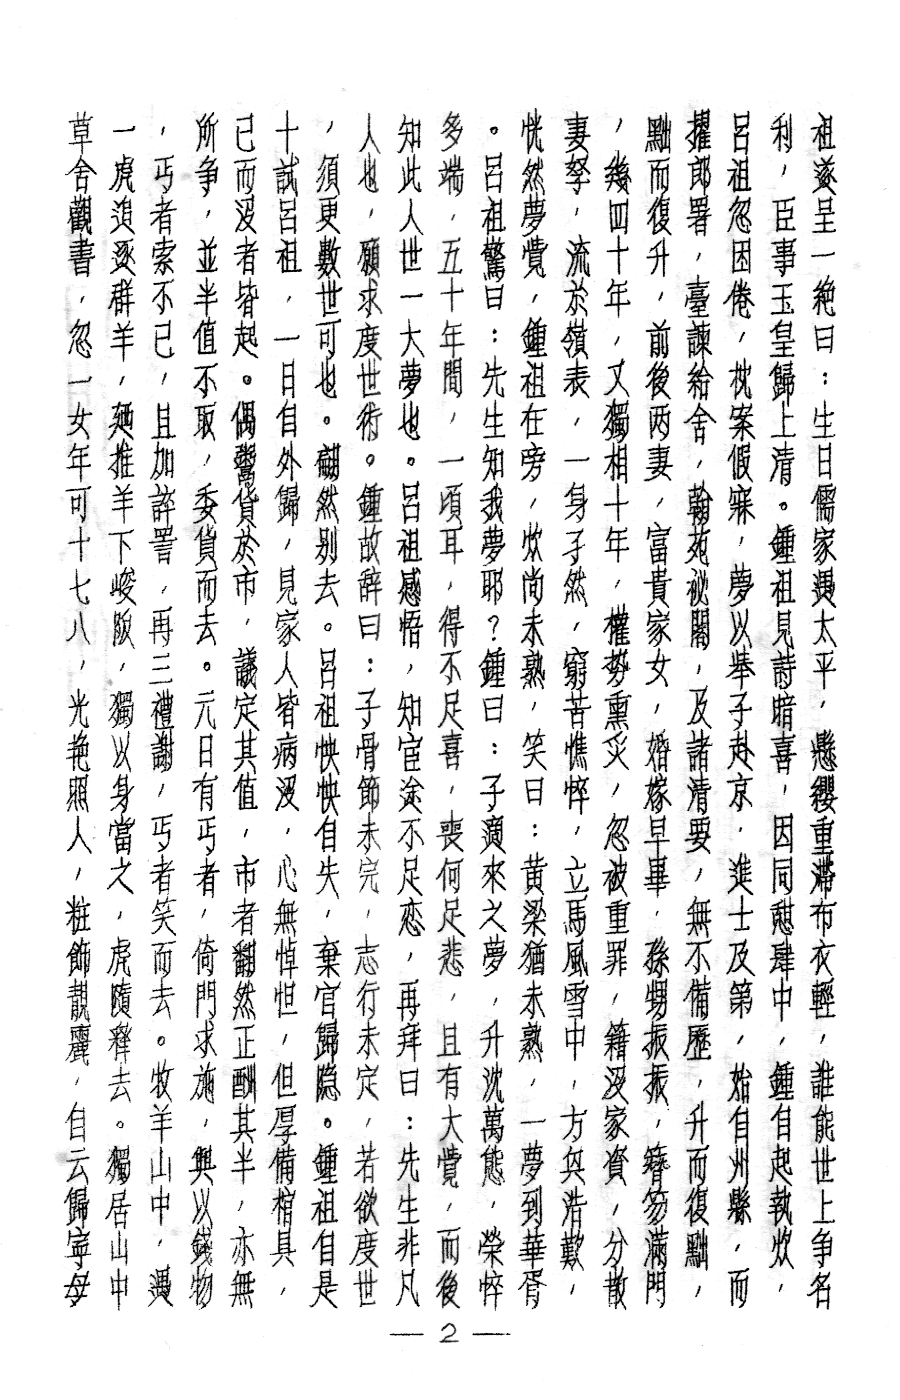 祖遂呈一絶曰：生日儒家遇太平，懸纓重滯布衣輕，誰能世上争名
利，臣事玉皇歸上清。鍾祖見詩暗喜，因同憇肆中，鍾自起執炊，
呂祖忽困倦，枕案假寐，夢以舉子赴京，進士及第，始自州縣，而
擢郎署，臺諫給舍，翰苑祕閣，及諸清要，無不備歷，升而復黜，
黜而復升，前後两妻，富貴家女，婚嫁早畢，孫甥振振，簪笏滿門
，幾四十年，又獨相十年，權勢熏炙，忽被重罪，籍没家資，分散
妻孥，流於嶺表，一身孑然，窮苦憔悴，立馬風雪中，方與浩歎，
恍然夢覺，鍾祖在旁，炊尚未熟，笑曰：黃梁猶未熟，一夢到華胥
。呂祖驚曰：先生知我夢耶？鍾曰：子適來之夢，升沈萬態，榮悴
多端，五十年間，一頃耳，得不足喜，喪何足悲，且有大覺，而後
知此人世一大夢也。呂祖感悟，知宦途不足恋，再拜曰：先生非凡
人也，願求度世術。鍾故辞曰：子骨節未完，志行未定，若欲度世
，須更數世可也。翩然别去。呂祖怏怏自失，棄官歸隐。鍾祖自是
十試呂祖，一日自外歸，見家人皆病没，心無悼怛，但厚備棺具，
已而没者皆起。偶鬻貨於市，議定其值，市者翻然正酬其半，亦無
所争，並半值不取，委貨而去。元日有丐者，倚門求施，與以錢物
，丐者索不已，且加誶詈，再三禮謝，丐者笑而去。牧羊山中，遇
一虎追逐群羊，廻推羊下峻阪，獨以身當之，虎隨釋去。獨居山中
草舍觀書，忽一女年可十七八，光艳照人，粧飾靚麗，自云歸寧母
— 2 —